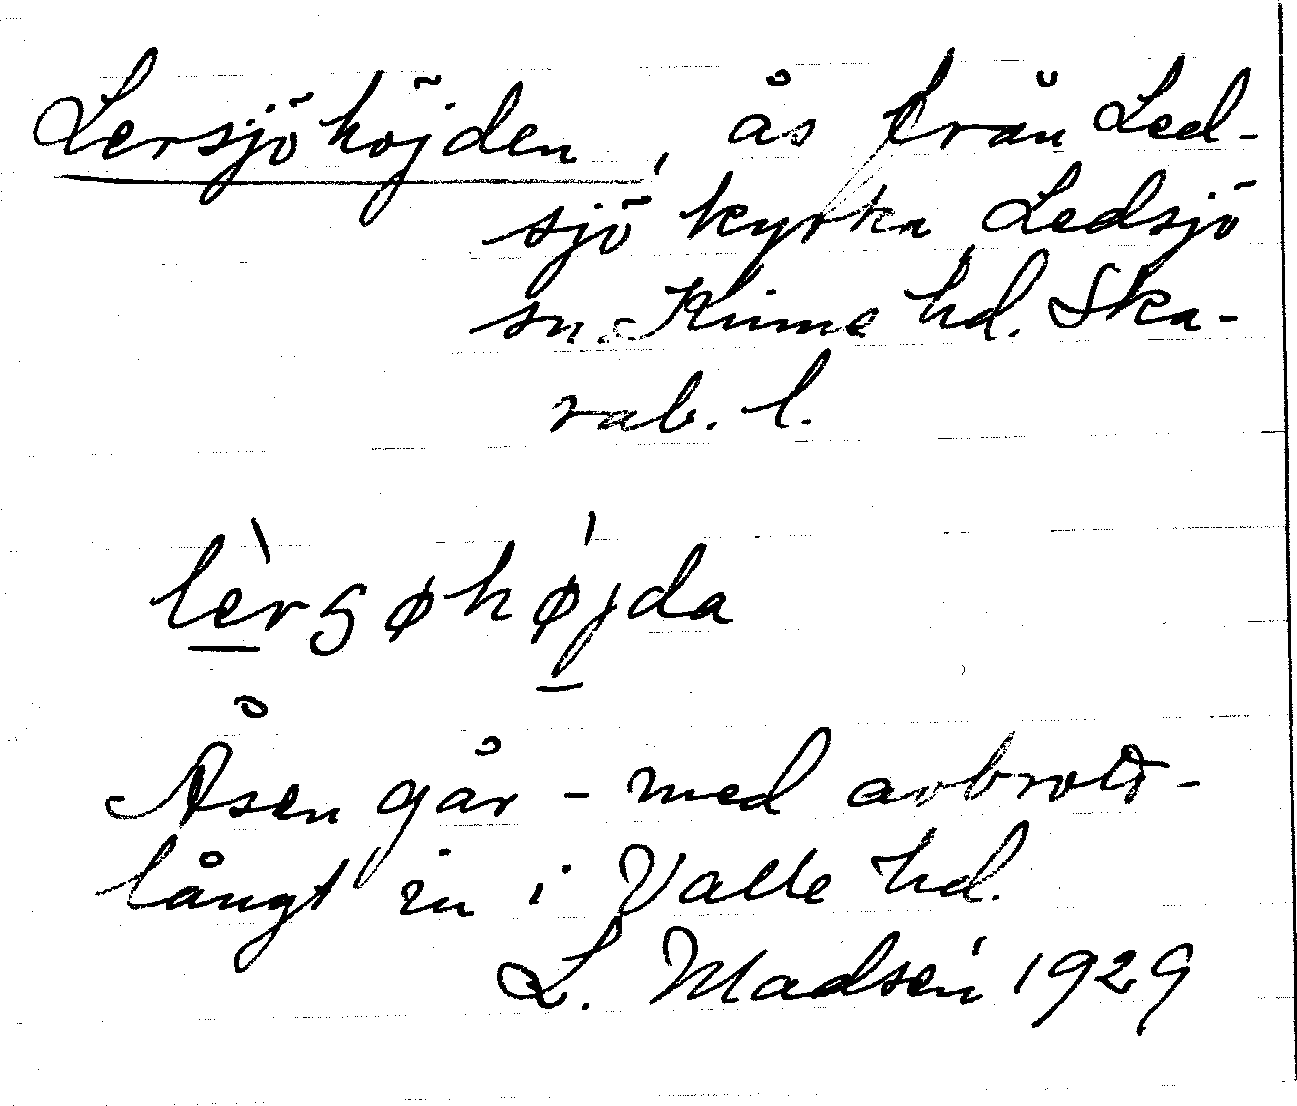 Lersjöhöjden, ås från Led-
sjö kyrka Ledsjö
sn. Kinne hd. Ska-
rab. l.
lèrsøhǿjda
Åsen går - med avbrott -
långt in i Valle hd.
L. Madsén 1929